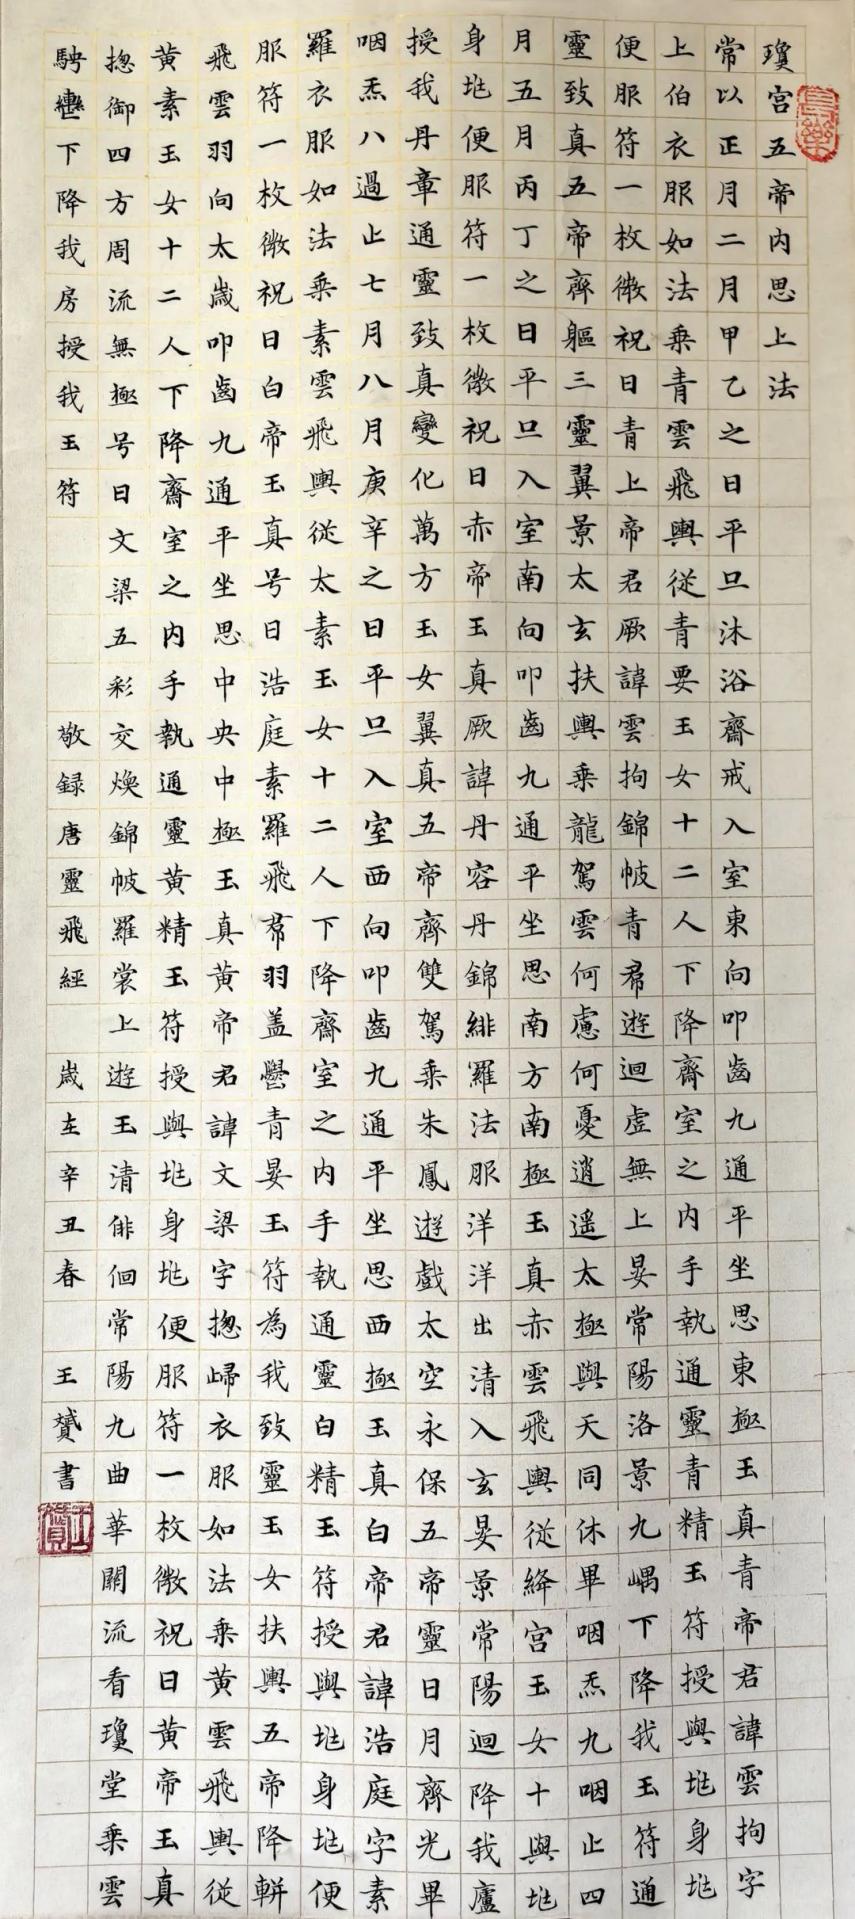 瓊宮五帝內思上法
常以正月二月甲乙之日平旦沐浴齋戒入室東向叩齒九通平坐思東極玉真青帝君諱雲拘字
上伯衣服如法乗青雲飛輿從青要玉女十二人下降齋室之內手執通靈青精玉符授與兆身兆
便服符一枚微祝曰青上帝君厥諱雲拘錦帔青帬遊迴虛無上晏常陽洛景九嵎下降我玉符通
靈致真五帝齊軀三靈翼景太玄扶輿乗龍駕雲何慮何憂逍遥太極與天同休畢咽炁九咽止四
月五月丙丁之日平旦入室南向叩齒九通平坐思南方南極玉真赤雲飛輿從絳宮玉女十與兆
身兆便服符一枚微祝曰赤帝玉真厥諱丹容丹錦緋羅法服洋洋出清入玄晏景常陽迴降我廬
授我丹章通靈致真變化萬方玉女翼真五帝齊雙駕乗朱鳳遊戲太空永保五帝靈日月齊光畢
咽炁八過止七月八月庚辛之日平旦入室西向叩齒九通平坐思西極玉真白帝君諱浩庭字素
羅衣服如法乗素雲飛輿從太素玉女十二人下降齋室之內手執通靈白精玉符授與兆身兆便
服符一枚微祝曰白帝玉真号曰浩庭素羅飛帬羽盖鬱青晏玉符為我致靈玉女扶輿五帝降軿
飛雲羽向太歲叩齒九通平坐思中央中極玉真黃帝君諱文梁字揔歸衣服如法乗黃雲飛輿從
黃素玉女十二人下降齋室之內手執通靈黃精玉符授與兆身兆便服符一枚微祝曰黃帝玉真
揔御四方周流無極号曰文梁五彩交煥錦帔羅裳上遊玉清俳佪常陽九曲華關流看瓊堂乗雲
騁轡下降我房授我玉符 敬録唐靈飛經 歲在辛丑春 王贇書